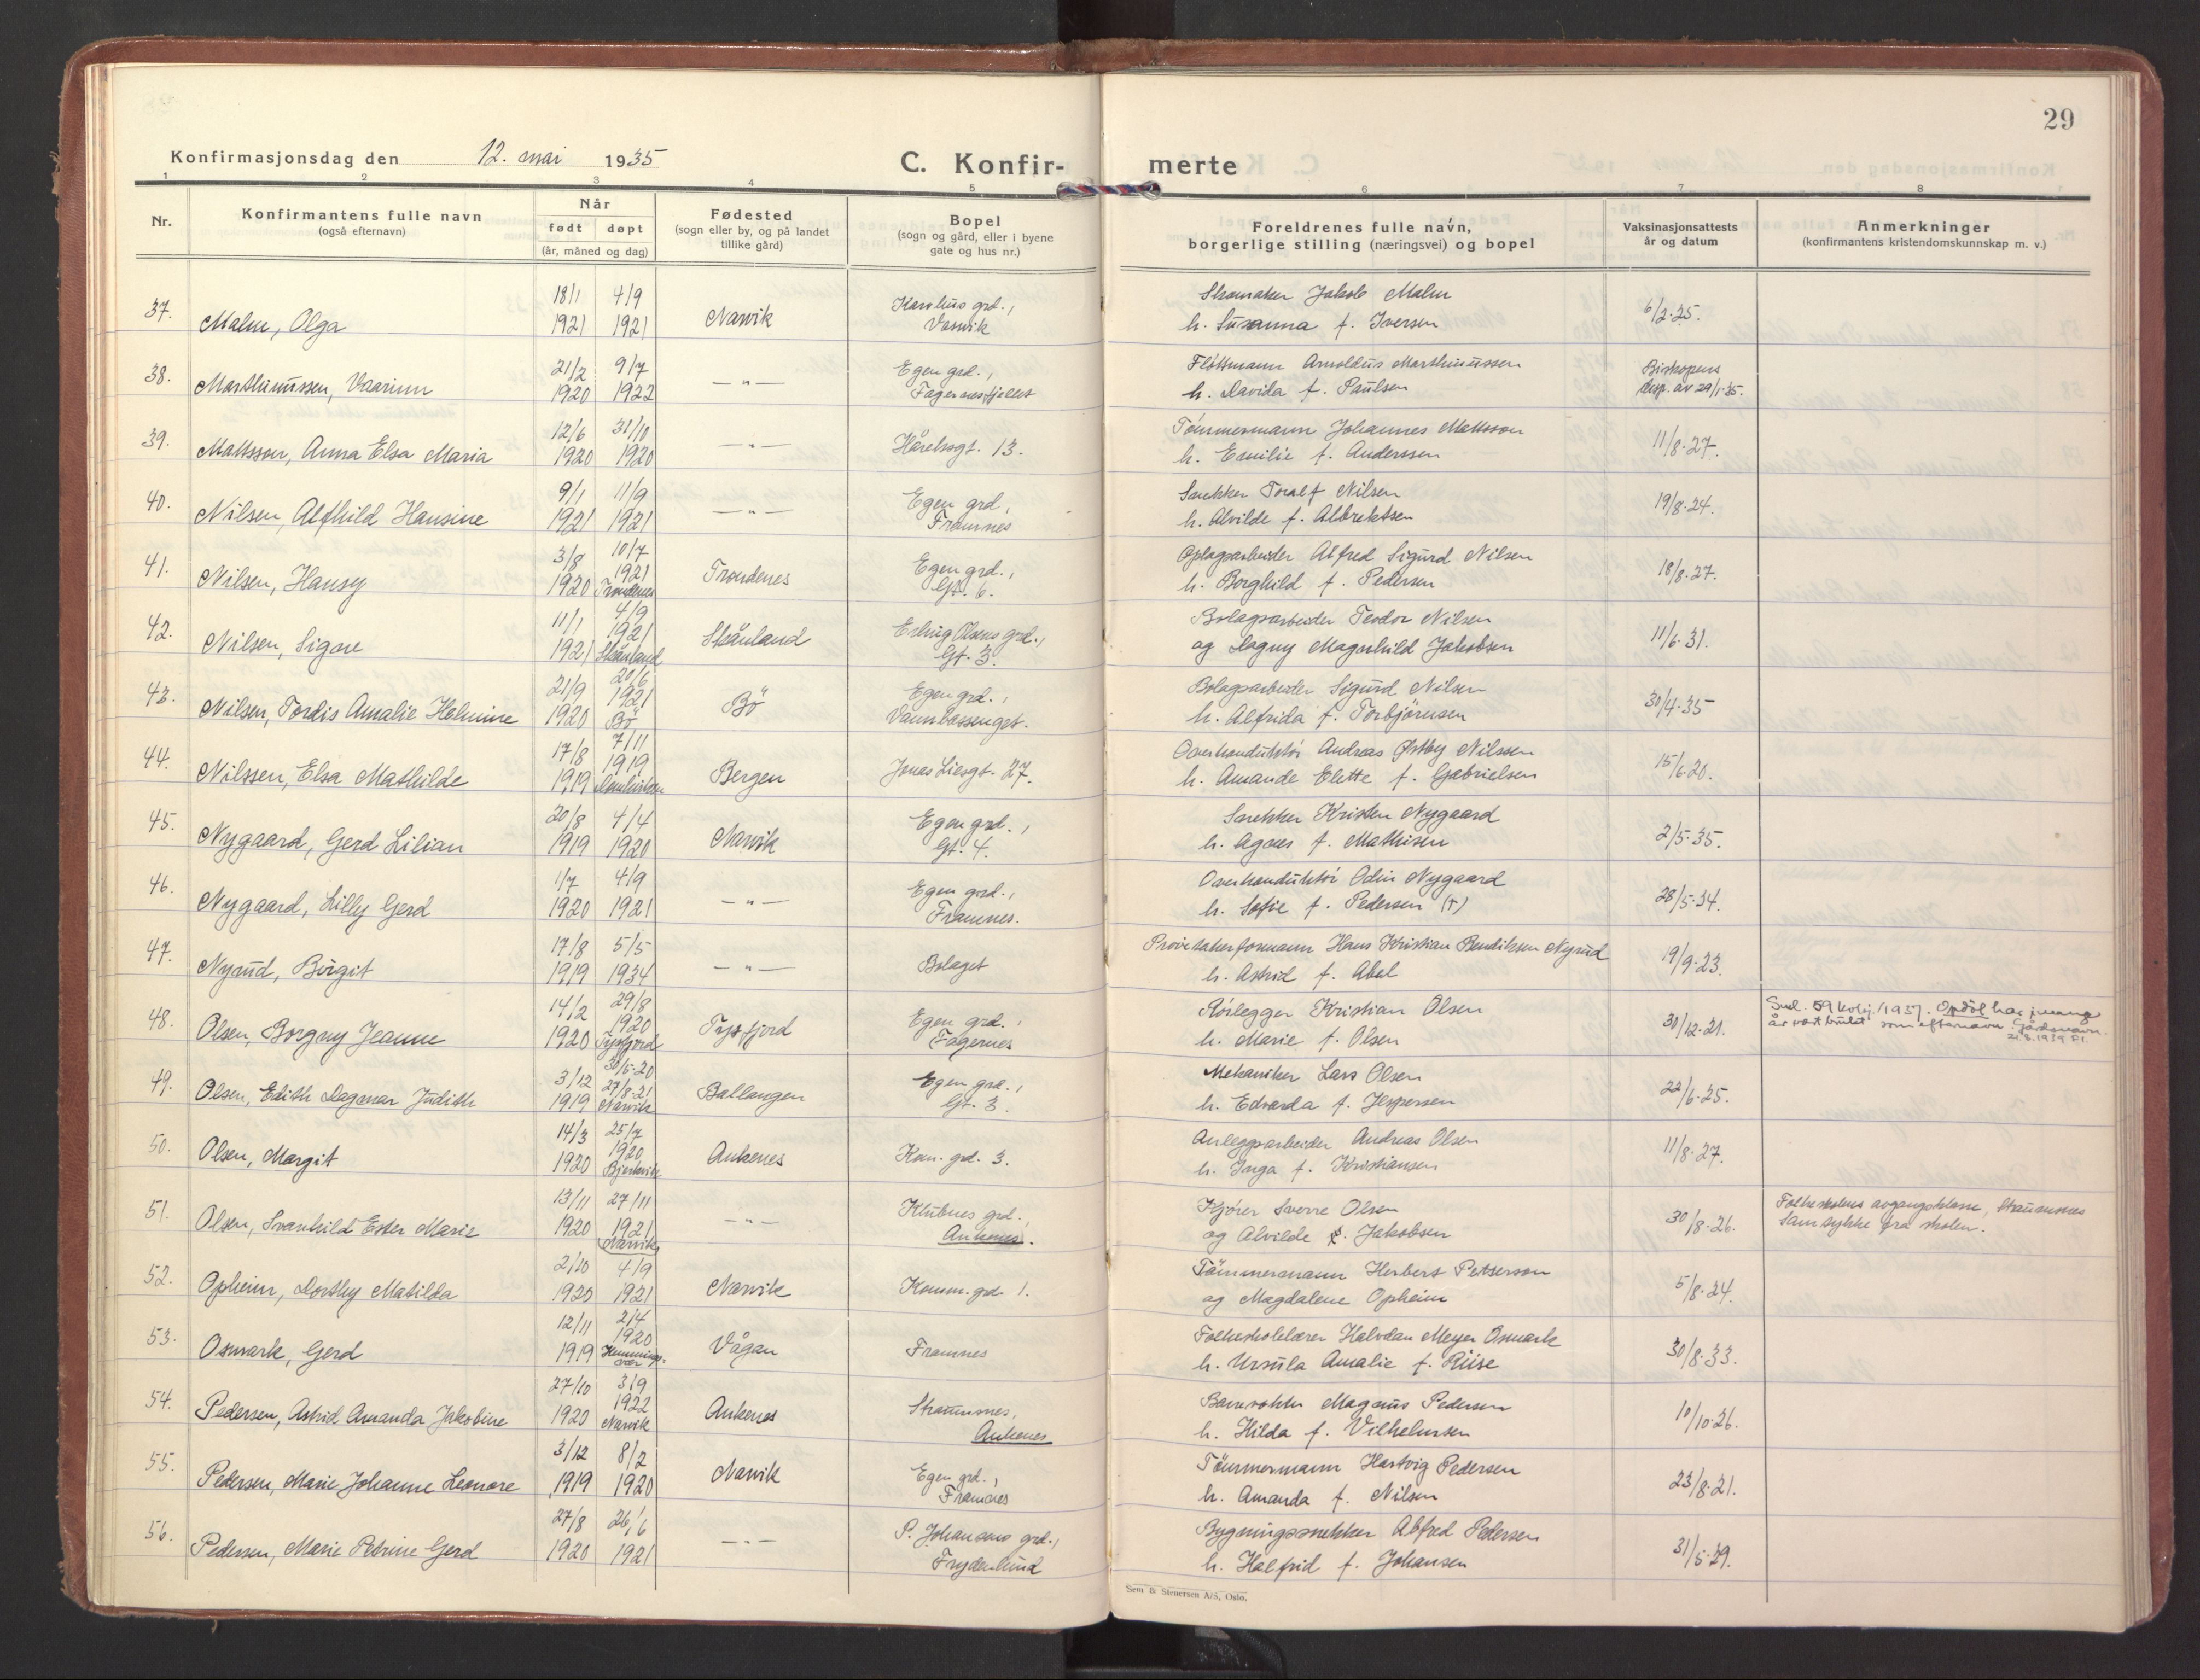 29
Konfirmasjonsdag den 12. mai 1935
C. Konfir-
merte
1 2 3 4 5 6 7 8
Nr.
Konfirmantens fulle navn
(også efternavn)
Når
født døpt
(år, måned og dag)
Fødested
(sogn eller by, og på landet
tillike gård)
Bopel
(sogn og gård, eller i byene
gate og hus nr.)
Foreldrenes fulle navn,
borgerlige stilling (næringsvei) og bopel
Vaksinasjonsattests
år og datum
Anmerkninger
(konfirmantens kristendomskunnskap m. v.)
37. 18/1 4/9 grd., Skomaker Jakob Malm
Malm, Olga 1921 1921 Narvik Vasvik h. Susanna f. Iversen 6/2-25.
38. 21/2 9/7 Egen grd., Fløttmann Arnoldus Marthinussen Biskopens
Marthinussen, Vaarinn 1920 1922 —"— Fagernesfjellet h. Davida f. Paulsen disp. av 29/1-35.
39. 12/6 31/10 Tømmermann Johannes Mattsson
Mattsson, Anna Elsa Maria 1920 1920 —"— Håreksgt. 13. h. Emilie f. Anderssen 11/8-27.
40. 9/1 11/9 Egen grd, Snekker Toralf Nilsen
Nilsen, Alfhild Hansine 1921 1921 —"— Framnes h. Alvilde f. Albrektsen 19/8-24.
41. 3/8 10/7 1921 Egen grd., Oplagsarbeider Alfred Sigurd Nilsen
Nilsen, Hansy 1920 Trondenes Trondenes Gt. 6. h. Borghild f. Pedersen 18/8-27.
42. 11/1 4/9 1921 Erling Olsens grd., Bolagsarbeider Teodor Nilsen
Nilsen, Signe 1921 Skånland Skånland Gt. 3. og Dagny Magnhild Jakobsen 11/6-31.
43. 21/9 20/6 1921 Egen grd., Bolagsarbeider Sigurd Nilsen
Nilsen, Tordis Amalie Helmine 1920 Bö Bö Vannbassenget. h. Alfrida f. Torbjörnsen 30/4-35
44. 17/8 7/11 1919 Overkonduktör Andreas Østby Nilssen
Nilssen, Elsa Mathilde 1919 Bergen Jonas Liesgt. 27. h. Amande Elette f. Gabrielsen 15/6-20.
45. 20/8 4/4 Egen grd., Snekker Kristen Nygaard
Nygaard, Gerd Lilian 1919 1920 Narvik Gt. 4. h. Agnes f. Mathisen 2/5-35.
46. 1/7 4/9 Egen grd., Overkonduktör Odin Nygaard
Nygaard, Lilly Gerd 1920 1921 —"— Framnes. h. Sofie f. Pedersen (†) 28/5-34.
47. 17/8 5/5 Prøvetakerformann Hans Kristian Bendiksen Nyrud
Nyrud, Birgit 1919 1934 —"— Bolaget h. Astrid f. Abel 19/9-23.
48. 14/2 29/8 1920 Egen grd., Rörlegger Kristian Olsen
Olsen, Borgny Jeanne 1920 Tysfjord Tysfjord Fagernes h. Marie f. Olsen 30/12-21.
Sml. 59 /1937. Opdöl har i mange
år vært brukt som efternavn. Gårdsnavn.
21.8.1939
49. 3/12 30/5-20 27/8-21 Egen grd., Mekaniker Lars Olsen
Olsen, Edith Dagmar Judith 1919 Narvik Ballangen Gt. 3. h. Edvarda f. Jespersen 22/6-25.
50. 14/3 25/7 1920 Anleggsarbeider Andreas Olsen
Olsen, Margit 1920 Bjerkvik Ankenes Kom. grd. 3. h. Inga f. Kristiansen 11/8-27.
51. 13/11 27/11 Klubnes grd., Kjører Sverre Olsen
Olsen, Svanhild Ester Marie 1920 1921 Narvik —"— Ankenes. og Alvilde f. Jakobsen 30/8-26.
Folkeskolens avgangsklasse, Straumsnes
Samtykke fra skolen.
52. 2/10 4/9 Tømmermann Herbert Petterson
Opheim, Dorthy Matilda 1920 1921 Narvik Komm. grd. 1. og Magdalene Opheim 5/8-24.
53. 12/11 2/4 1920 Folkeskolelærer Halvdan Meyer Osmark
Osmark, Gerd 1919 Hennings-vær Vågan Framnes h. Ursula Amalie f. Riise 30/8-33.
54. 27/10 3/9 1922 Straumsnes, Banevokter Magnus Pedersen
Pedersen, Astrid Amanda Jakobine 1920 Narvik Ankenes Ankenes h. Hilda f. Vilhelmsen 10/10-26.
55. 3/12 8/2 Egen grd., Tømmermann Hartvig Pedersen
Pedersen, Marie Johanne Leonore 1919 1920 Narvik Framnes h. Amanda f. Nilsen 23/8-21.
56. 27/8 26/6 P. Johansens grd., Bygningssnekker Alfred Pedersen
Pedersen, Marie Petrine Gerd 1920 1921 —"— Frydenlund h. Halfrid f. Johansen 31/5-29.
Sem & Stenersen A/S, Oslo.